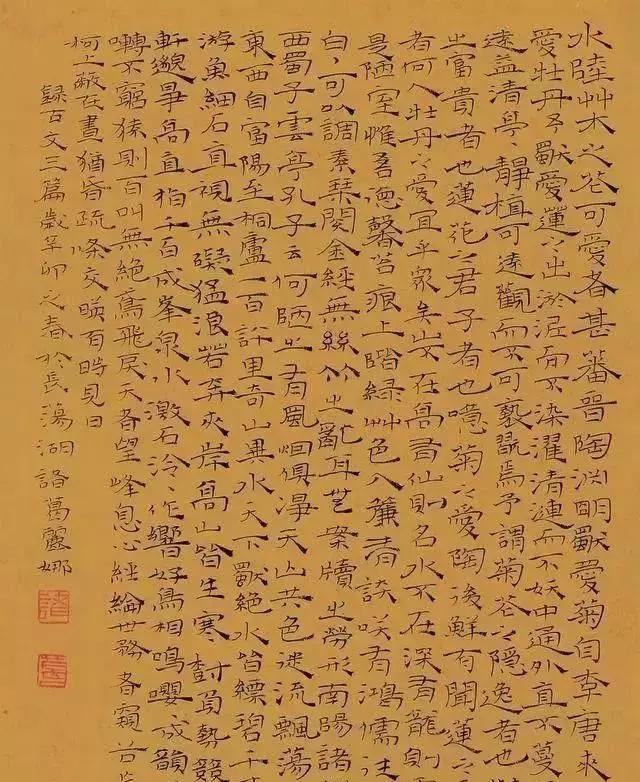 水陸艸木之花可愛者甚蕃晉陶淵明獨愛菊自李唐來
愛牡丹予獨愛蓮之出淤泥而不染濯清漣而不妖中通外直不蔓
遠益清亭〻靜植可遠觀而不可褻翫焉予謂菊花之隱逸者也
之富貴者也蓮花之君子者也噫菊之愛陶後鮮有聞蓮之
者何人牡丹之愛宜乎眾矣山不在高有仙則名水不在深有龍則
是陋室惟吾德馨苔痕上階綠艸色入簾青談咲有鴻儒往
白丁可以調素琹閱金經無絲竹之亂耳無案牘之勞形南陽諸
西蜀子雲亭孔子云何陋之有風烟俱淨天山共色從流飄蕩
東西自富陽至桐廬一百許里奇山異水天下獨絕水皆縹碧千
游魚細石直視無礙猛浪若奔夾岸高山皆生寒樹負勢競
軒邈畢高直指千百成峯泉水激石泠〻作響好鳥相鳴嚶成韻
囀不窮猿則百叫無絕鳶飛戾天者望峰息心經綸世務者窺谷
柯上蔽在晝猶昏疏條交映有時見日
錄古文三篇歲辛卯之春於長蕩湖諸葛麗娜